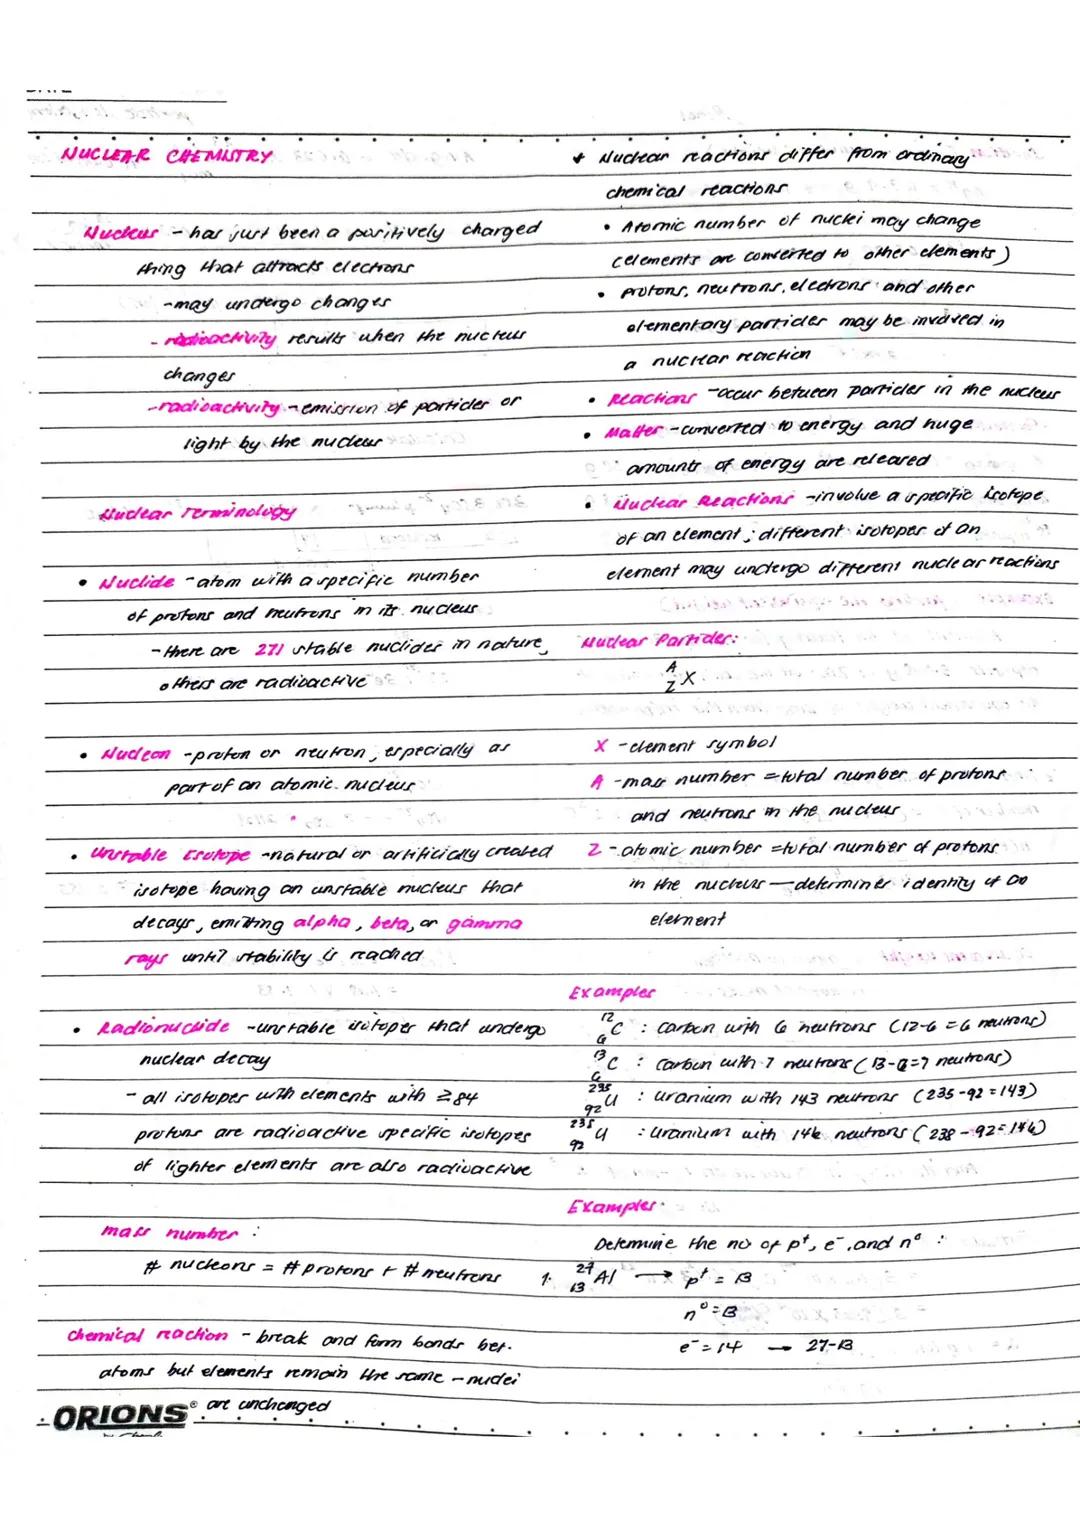 NUCLEAR CHEMISTRY
Nucleus - has just been a positively charged
thing that attracts electrons
- may undergo changes
- radioactivity results when the nucleus
changes
- radioactivity - emission of particles or
light by the nucleus
Nuclear Terminology
• Nuclide - atom with a specific number
of protons and neutrons in its nucleus
- there are 271 stable nuclides in nature,
others are radioactive
• Nucleon - proton or neutron, especially as
part of an atomic nucleus
• Unstable Isotope - natural or artificially created
isotope having an unstable nucleus that
decays, emitting alpha, beta, or gamma
rays until stability is reached
• Radionuclide - unstable isotopes that undergo
nuclear decay
- all isotopes with elements with ≥84
protons are radioactive specific isotopes
of lighter elements are also radioactive
mass number :
# nucleons = # protons + # neutrons
chemical reaction - break and form bonds bet.
atoms but elements remain the same - nuclei
are unchanged
ORIONS®
+ Nuclear reactions differ from ordinary
chemical reactions
• Atomic number of nuclei may change
(elements are converted to other elements)
• protons, neutrons, electrons and other
elementary particles may be involved in
a nuclear reaction
• Reactions - occur between particles in the nucleus
• Matter - converted to energy and huge
amounts of energy are released
• Nuclear Reactions - involve a specific isotope
of an element; different isotopes of an
element may undergo different nuclear reactions
Nuclear Particles:
A
Z X
X - element symbol
A - mass number = total number of protons
and neutrons in the nucleus
Z - atomic number = total number of protons
in the nucleus — determines identity of an
element
Examples
12
6 C : Carbon with 6 neutrons (12-6 = 6 neutrons)
13
6 C : Carbon with 7 neutrons (13-6=7 neutrons)
235
92 U : Uranium with 143 neutrons (235-92 = 143)
238
92 U : Uranium with 146 neutrons (238-92 = 146)
Examples
Determine the no of p⁺, e⁻, and n⁰ :
1. 27
13 Al → p⁺ = 13
n⁰ = 13
e⁻ = 14 → 27-13